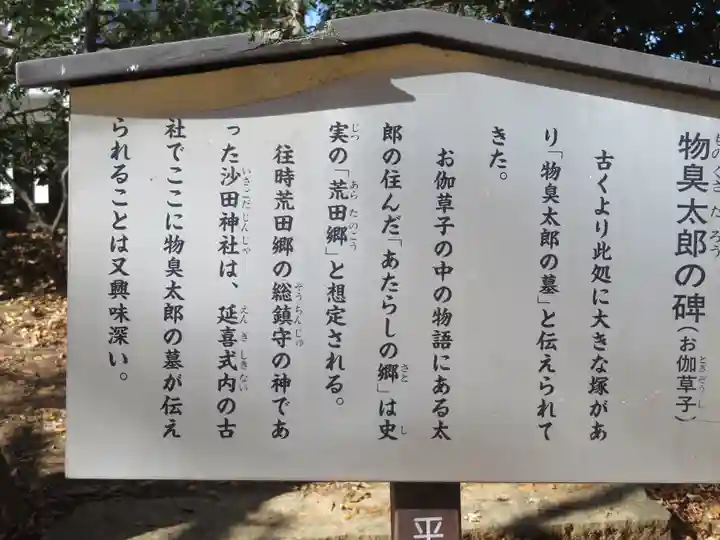 物臭太郎の碑(お伽草子)
古くより此処に大きな塚があ
り「物臭太郎の墓」と伝えられて
きた。
お伽草子の中の物語にある太
郎の住んだ「あたらしの郷」は史
実の「荒田郷」と想定される。
往時荒田郷の総鎮守の神であ
った沙田神社は、延喜式内の古
社でここに物臭太郎の墓が伝え
られることは又興味深い。
平